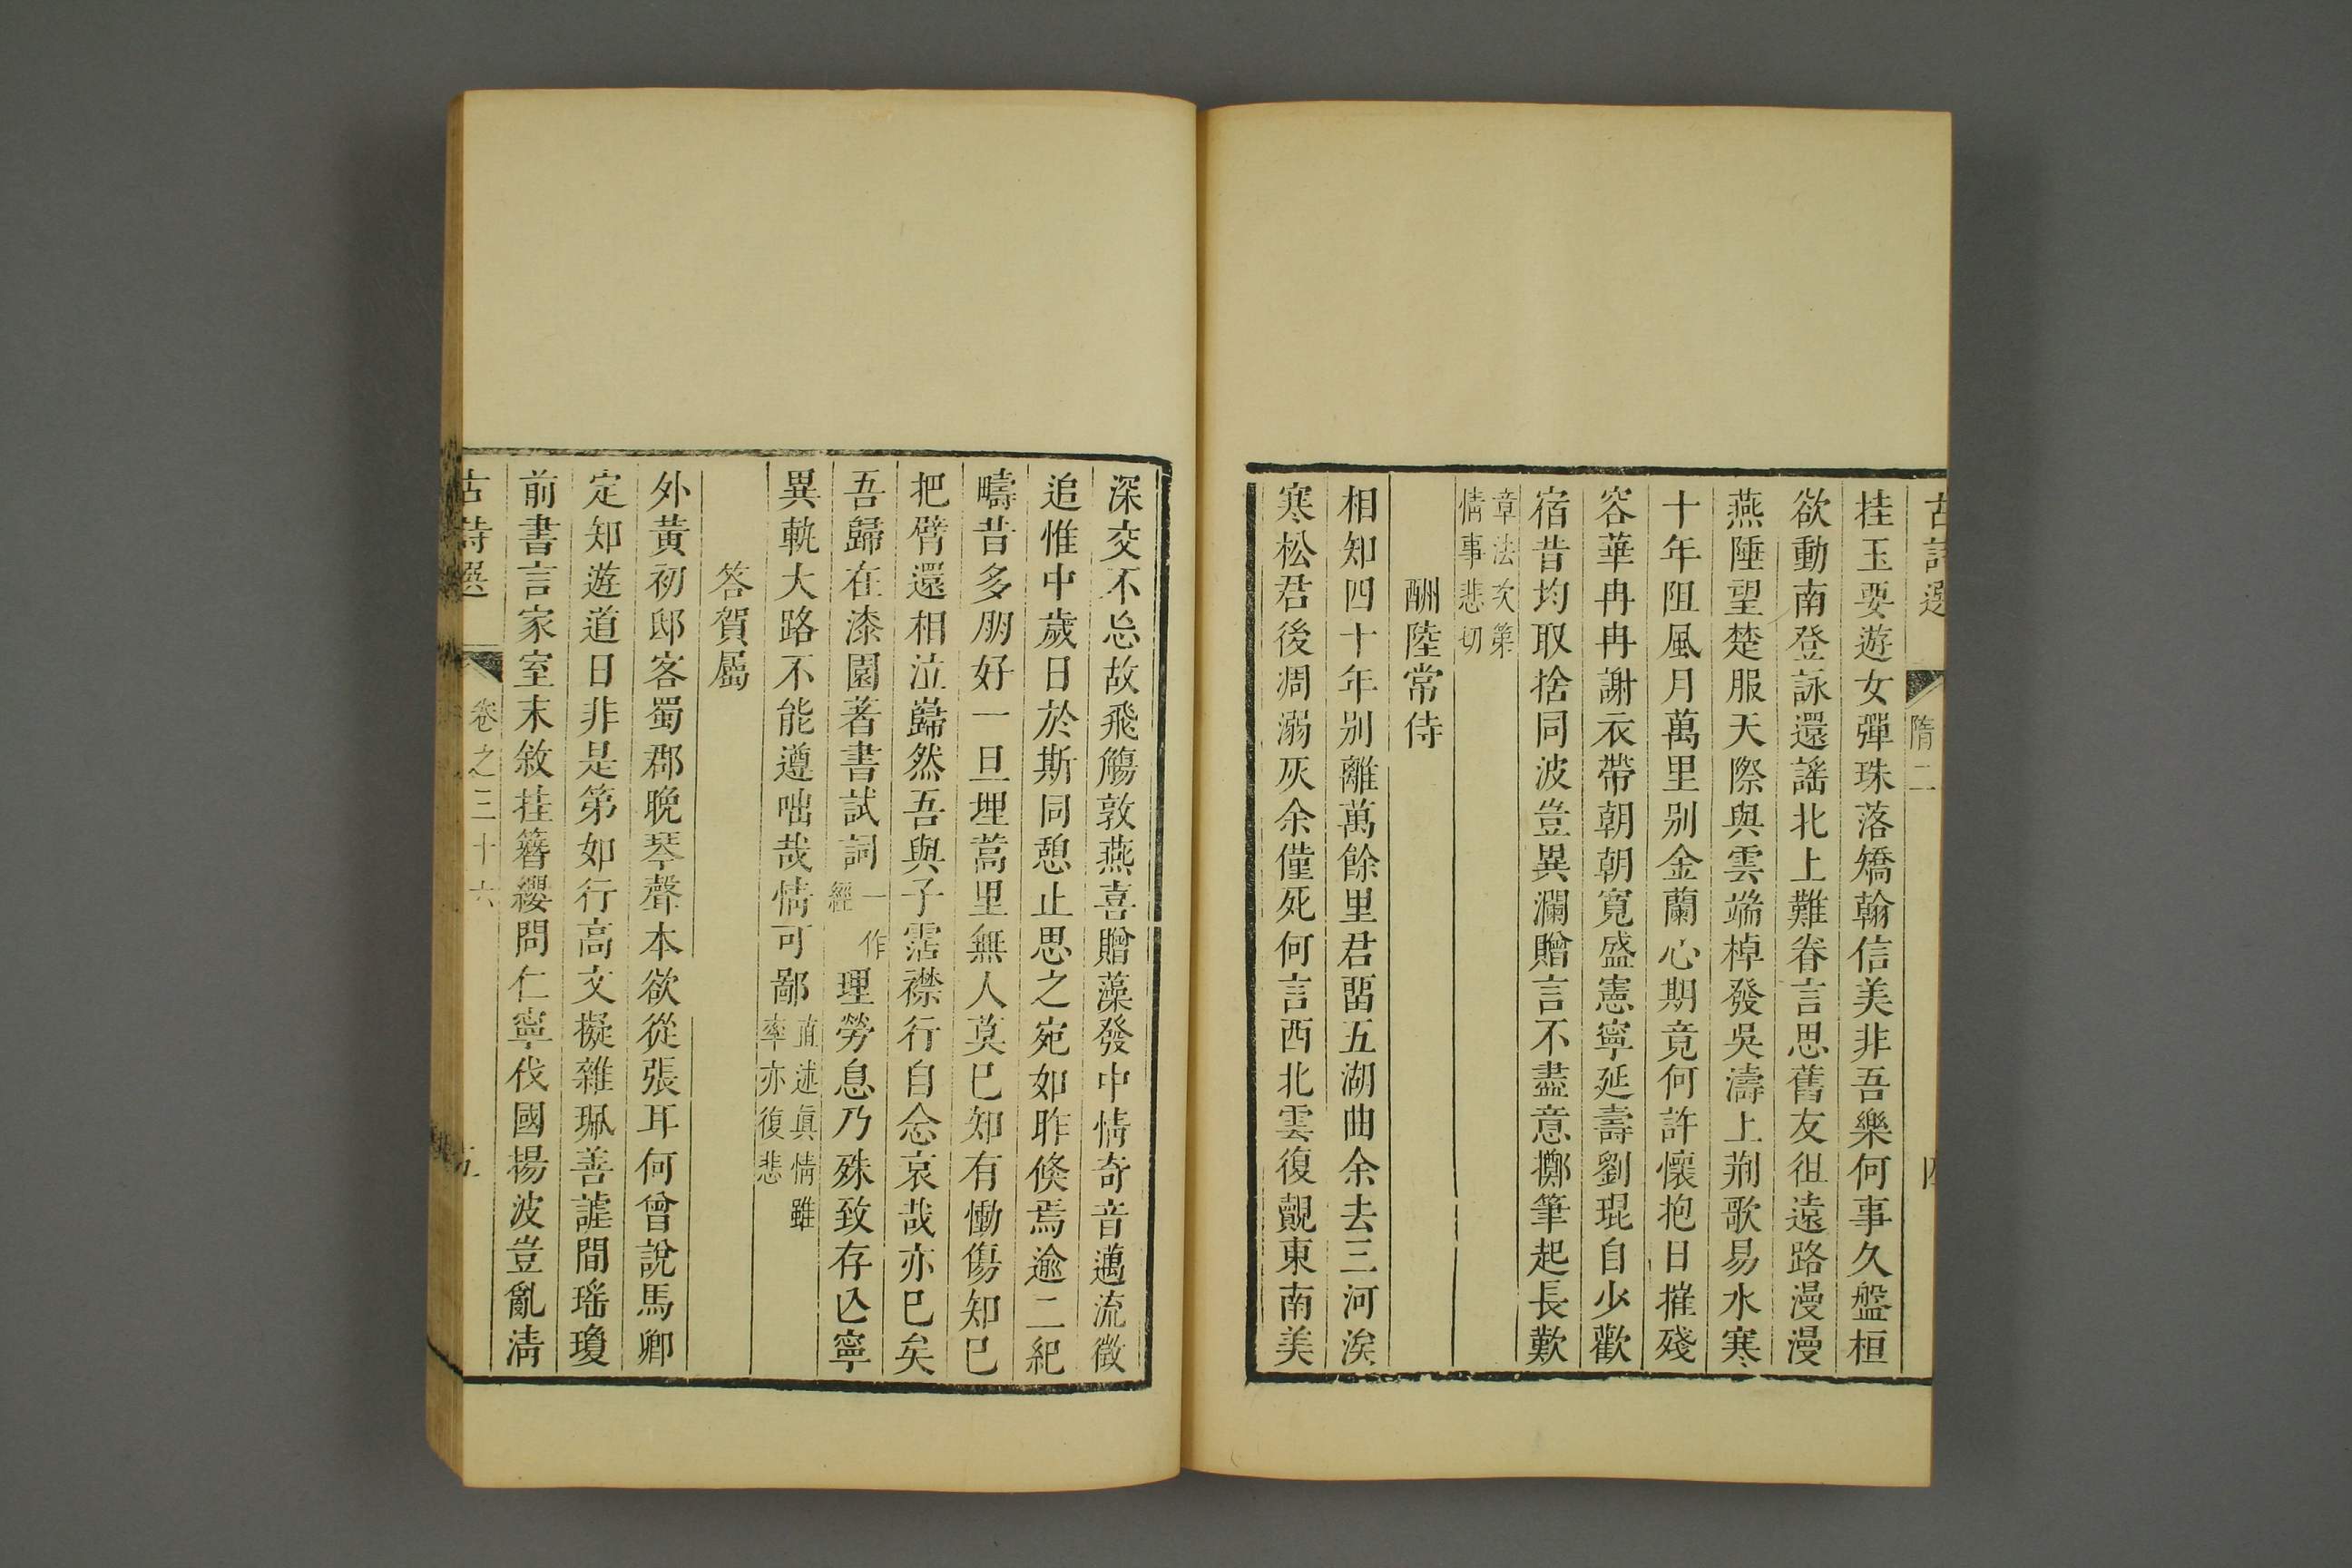 古詩選 隋二
挂玉要遊女彈珠落矯翰信美非吾樂何事久盤桓
欲動南登詠還謠北上難眷言思舊友徂遠路漫漫
燕陲望楚服天際與雲端棹發吳濤上荊歌易水寒
十年阻風月萬里別金蘭心期竟何許懷抱日摧殘
容華冉冉謝衣帶朝朝寬盛憲寧延壽劉琨自少歡
宿昔均取捨同波豈異瀾贈言不盡意擲筆起長歎
章法次第
情事悲切
酬陸常侍
相知四十年別離萬餘里君畱五湖曲余去三河涘
寒松君後凋溺灰余僅死何言西北雲復觀東南美
深交不忘故飛觴敦燕喜贈藻發中情奇音邁流徵
追惟中歲日於斯同憩止思之宛如昨倐焉逾二紀
疇昔多朋好一旦埋蒿里無人莫已知有慟傷知已
把臂還相泣巋然吾與子霑襟行自念哀哉亦已矣
吾歸在漆園著書試詞一作經理勞息乃殊致存亾寧
異軌大路不能遵咄哉情可鄙直述眞情雖率亦復悲
答賀屬
外黃初邸客蜀郡晩琴聲本欲從張耳何曾說馬卿
定知遊道日非是第如行高文擬雜珮善謔間瑶瓊
前書言家室末敘挂簪纓問仁寧伐國揚波豈亂淸
古詩選 卷之三十六 五